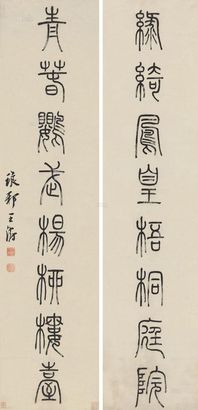 綠綺鳳皇梧桐庭院
青春鸚武楊柳樓臺
琅邪王澍